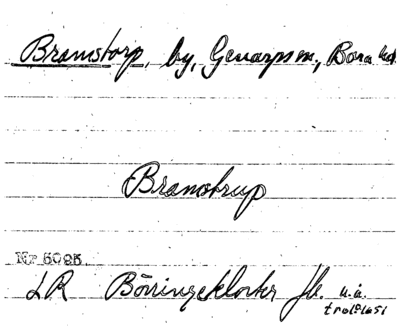 Bramstorp, by, Genarps sn, Bara hd.
Bramstrup
Nr 5095.
LR Börringekloster Jb. u.å.
trol. 1651